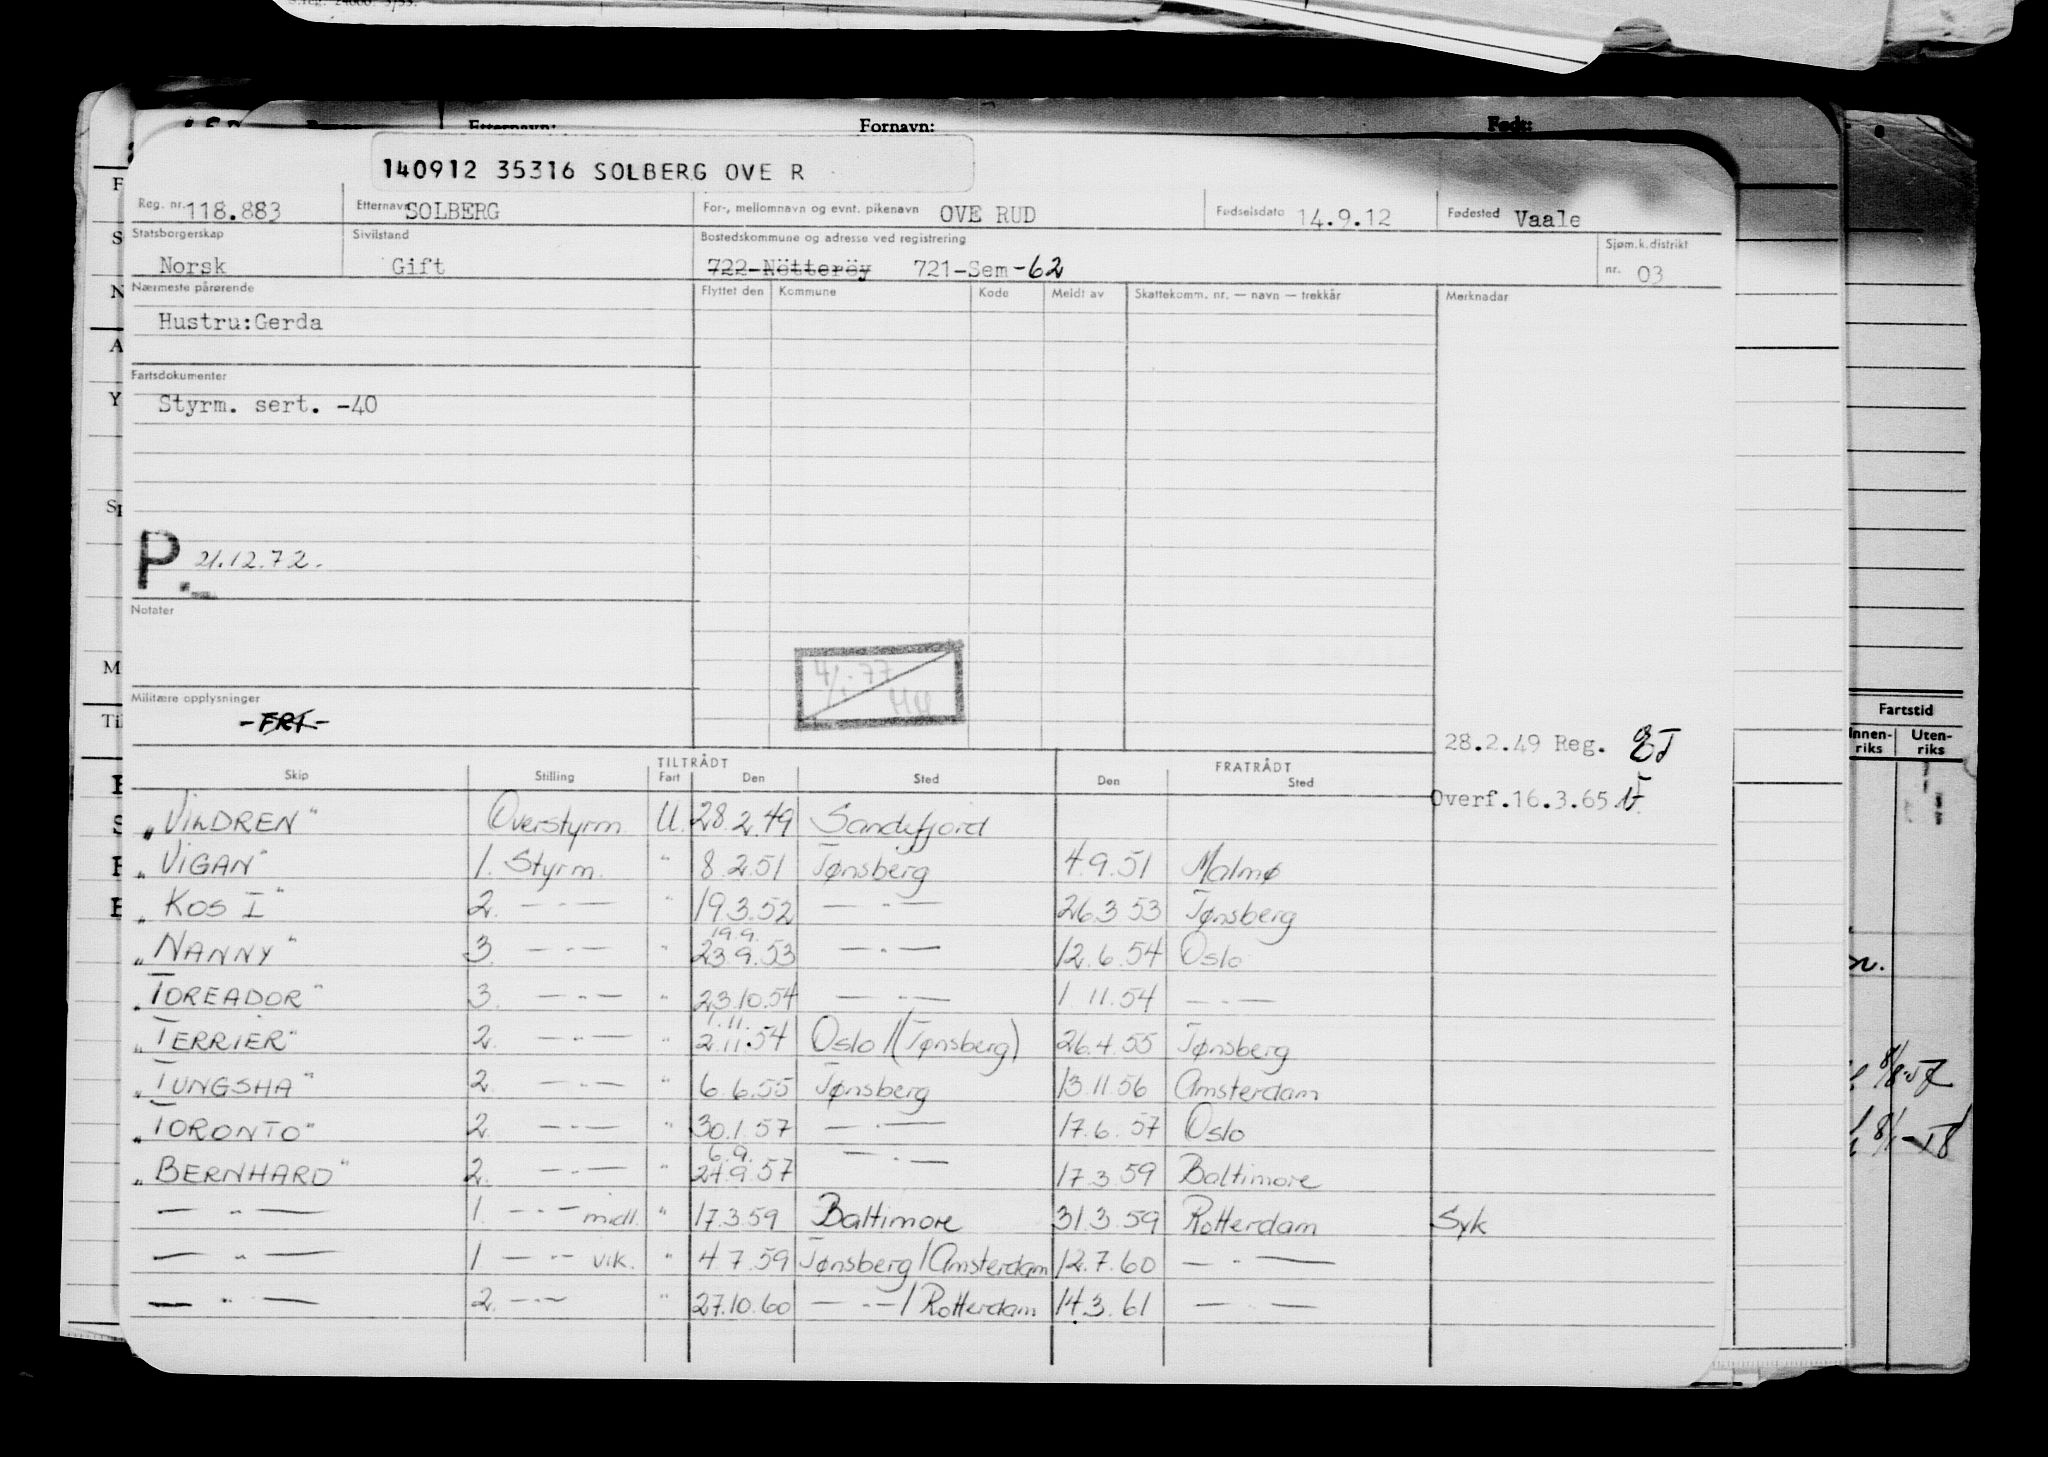 Etternavn: Fornavn: Født:
140912 35316 SOLBERG OVE R
Reg. nr. 118.883 Etternavn SOLBERG For-, mellomnavn og evnt. pikenavn OVE RUD Fødselsdato 14.9.12 Fødested Vaale
Statsborgerskap Sivilstand Bostedskommune og adresse ved registrering Sjøm.k.distrikt
Norsk Gift 722-Nötteröy 721-Sem-62 nr. 03
Nærmeste pårørende Flyttet den Kommune Kode Meldt av Skattekomm. nr. — navn — trekkår Merknader
Hustru:Gerda
Fartsdokumenter
Styrm. sert. -40
P. 21.12.72.
Notater
4/1-77
HH
Militære opplysninger
-FRT-
28.2.49 Reg.
Fartstid
Innen-riks Uten-riks
TILTRÅDT FRATRÅDT
Skip Stilling Fart Den Sted Den Sted
Overf.16.3.65
„VILDREN" Overstyrm. U. 28.2.49 Sandefjord
„VIGAN" 1. Styrm. " 8.2.51 Tønsberg 4.9.51 Malmø
„KOS I" 2. — " — " 19.3.52 — " — 26.3.53 Tønsberg
19.9.
„NANNY" 3. — " — " 23.9.53 — " — 12.6.54 Oslo
„TOREADOR" 3. — " — " 23.10.54 — " — 1.11.54 — " —
1.11.
„TERRIER" 2. — " — " 2.11.54 Oslo/(Tønsberg) 26.4.55 Tønsberg
„TUNGSHA" 2. — " — " 6.6.55 Tønsberg 13.11.56 Amsterdam
„TORONTO" 2. — " — " 30.1.57 — " — 17.6.57 Oslo
6.9.
„BERNHARD" 2. — " — " 24.9.57 — " — 17.3.59 Baltimore
— " — 1. — " — midl. " 17.3.59 Baltimore 31.3.59 Rotterdam Syk
— " — 1 — " — vik. " 4.7.59 Tønsberg/Amsterdam 12.7.60 — " —
— " — 2. — " — " 27.10.60 — " —/Rotterdam 14.3.61 — " —